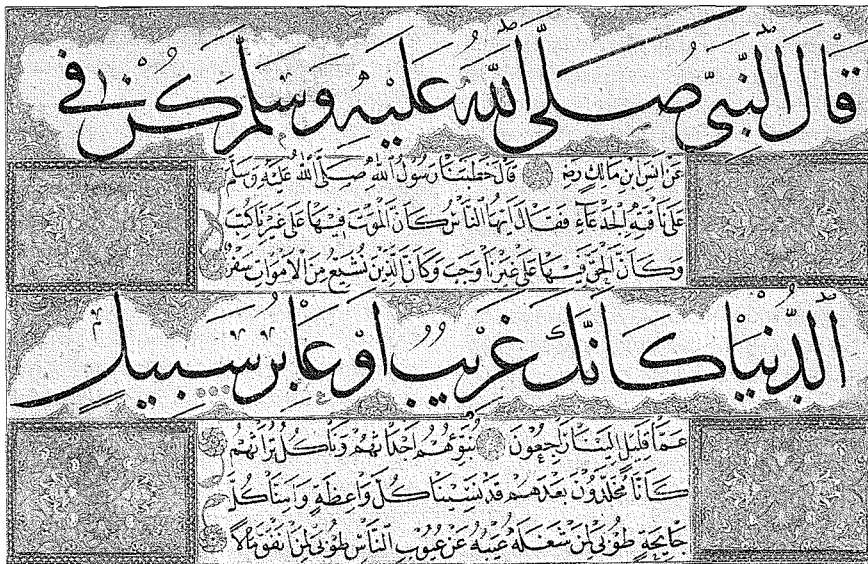 قَالَ النَّبِيُّ صَلَّى اللهُ عَلَيْهِ وَسَلَّمَ كُنْ فِي
عَنْ اَنَسِ ابْنِ مَالِكٍ رضـ قَالَ خَطَبَنَا رَسُولُ اللهِ صَلَّى اللهُ عَلَيْهِ وَسَلَّمَ
عَلَى نَاقَتِهِ الْجَدْعَاءِ فَقَالَ اَيُّهَا النَّاسُ كَاَنَّ الْمَوْتَ فِيهَا عَلَى غَيْرِنَا كُتِبَ
وَكَاَنَّ الْحَقَّ فِيهَا عَلَى غَيْرِنَا وَجَبَ وَكَاَنَّ الَّذِينَ نُشَيِّعُ مِنَ الْاَمْوَاتِ سَفْرٌ
الدُّنْيَا كَاَنَّكَ غَرِيبٌ اَوْ عَابِرُ سَبِيلٍ
عَمَّا قَلِيلٍ اِلَيْنَا رَاجِعُونَ نُبَوِّئُهُمْ اَجْدَاثَهُمْ وَنَأْكُلُ تُرَاثَهُمْ
كَاَنَّا مُخَلَّدُونَ بَعْدَهُمْ قَدْ نَسِينَا كُلَّ وَاعِظَةٍ وَاَمِنَّا كُلَّ
جَايِحَةٍ طُوبَى لِمَنْ شَغَلَهُ عَيْبُهُ عَنْ عُيُوبِ النَّاسِ طُوبَى لِمَنْ اَنْفَقَ مَالًا